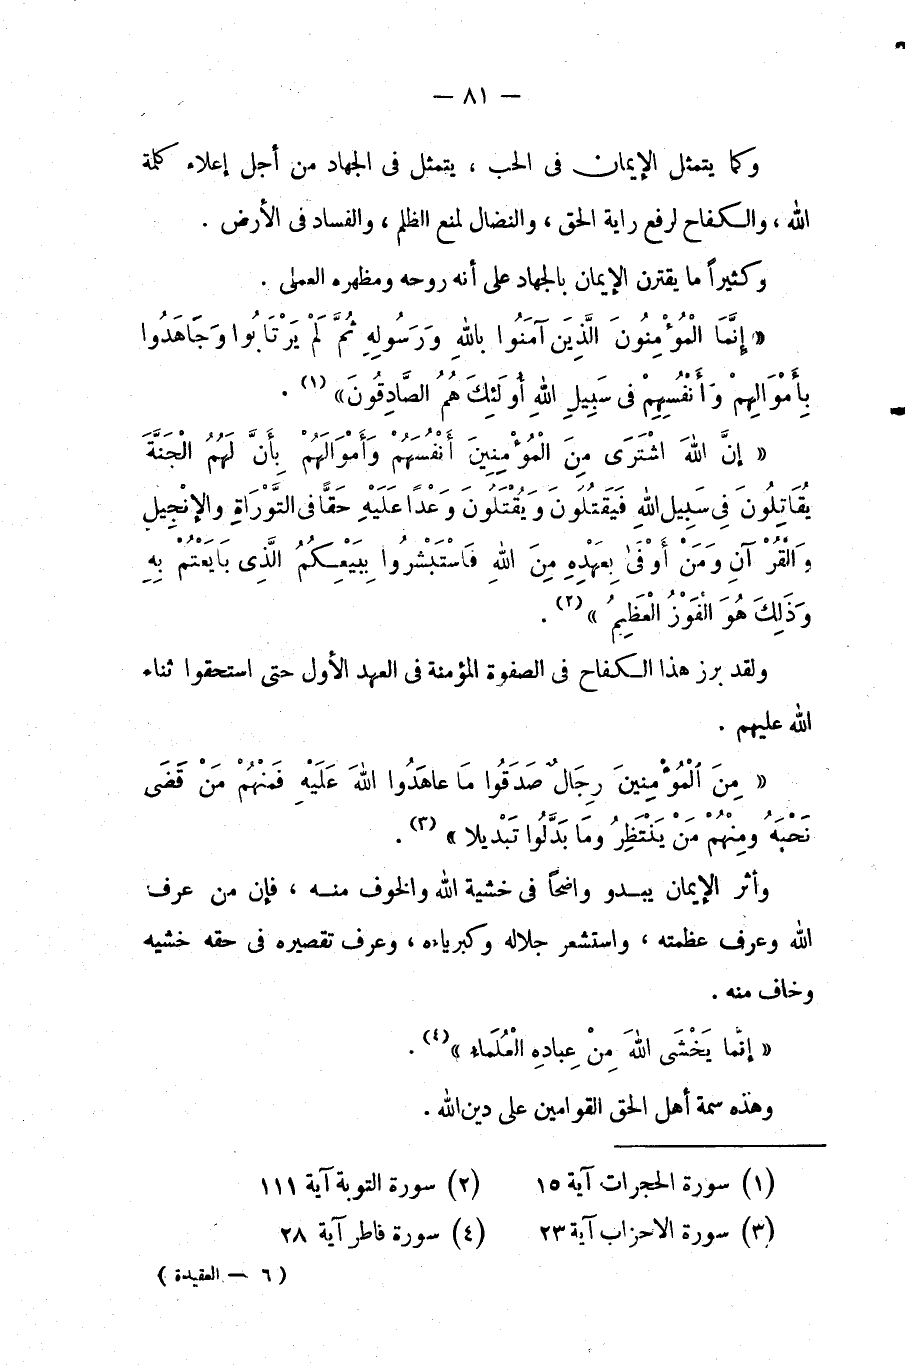 — ٨١ —
وكما يتمثل الإيمان فى الحب ، يتمثل فى الجهاد من أجل إعلاء كلمة
الله ، والكفاح لرفع راية الحق ، والنضال لمنع الظلم ، والفساد فى الأرض .
وكثيراً ما يقترن الإيمان بالجهاد على أنه روحه ومظهره العملى .
« إِنَّمَا الْمُؤْمِنُونَ الَّذِينَ آمَنُوا بِاللهِ وَرَسُولِهِ ثُمَّ لَمْ يَرْتَابُوا وَجَاهَدُوا
بِأَمْوَالِهِمْ وَأَنْفُسِهِمْ فى سَبِيلِ اللهِ أُولَئِكَ هُمُ الصَّادِقُونَ» (١) .
« إنَّ اللهَ اشْتَرَى مِنَ الْمُؤْمِنِينَ أَنْفُسَهُمْ وَأَمْوَالَهُمْ بِأَنَّ لَهُمُ الْجَنَّةَ
يُقَاتِلُونَ فِى سَبِيلِ اللهِ فَيَقتُلُونَ وَيُقْتَلُونَ وَعْدًا عَلَيْهِ حَقًّا فى التَّوْرَاةِ والإنْجِيلِ
وَالْقُرْآنِ وَمَنْ أَوْفَى بِعَهْدِهِ مِنَ اللهِ فَاسْتَبْشرُوا بِبَيْعِكمُ الَّذِى بَايَعْتُمْ بِهِ
وَذَلِكَ هُوَ الْفَوْزُ الْعَظِيمُ » (٢) .
ولقد برز هذا الكفاح فى الصفوة المؤمنة فى العهد الأول حتى استحقوا ثناء
الله عليهم .
« مِنَ الْمُؤْمِنِينَ رِجَالٌ صَدَقُوا مَا عاهَدُوا اللهَ عَلَيْهِ فَمِنْهُمْ مَنْ قَضَى
نَحْبَهُ ومِنْهُمْ مَنْ يَنْتَظِرُ وَمَا بَدَّلُوا تَبْدِيلا » (٣) .
وأثر الإيمان يبدو واضحاً فى خشية الله والخوف منه ، فإن من عرف
الله وعرف عظمته ، واستشعر جلاله وكبرياءه ، وعرف تقصيره فى حقه خشيه
وخاف منه .
« إنَّما يَخْشَى اللهَ مِنْ عِبادِهِ الْعُلَمَاء » (٤) .
وهذه سمة أهل الحق القوامين على دين الله .
(١) سورة الحجرات آية ١٥ (٢) سورة التوبة آية ١١١
(٣) سورة الاحزاب آية ٢٣ (٤) سورة فاطر آية ٢٨
( ٦ — العقيدة )